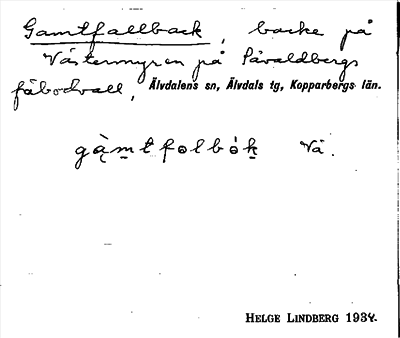 Gamtfallback, backe på
Västermyren på Påvaldbergs
fäbodvall, Älvdalens sn, Älvdals tg, Kopparbergs län.
gą̀m̠tfɷlbɷ́k̠ Vä.
HELGE LINDBERG 1934.